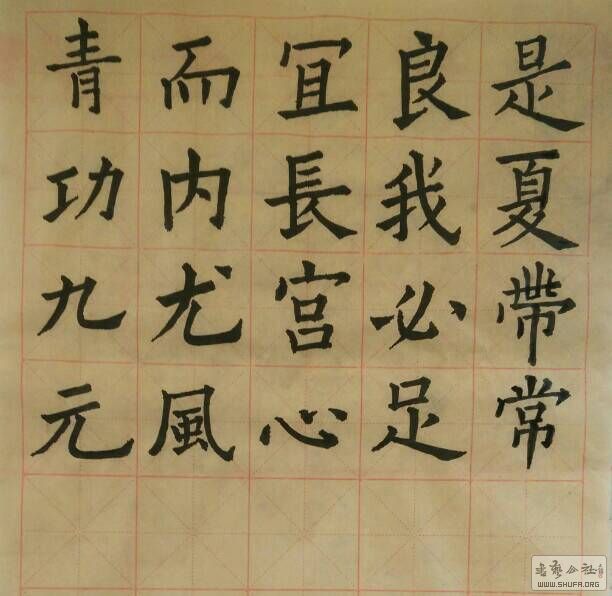 是夏帶常
良我必足
冝長宫心
而内尤風
青功九元
书艺公社
WWW.SHUFA.ORG